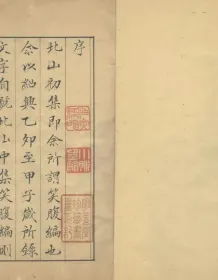 序
北山初集即余所謂笑腹編也
余以紹興乙卯至甲子歲所錄
文字自號北山中集笑腹編則